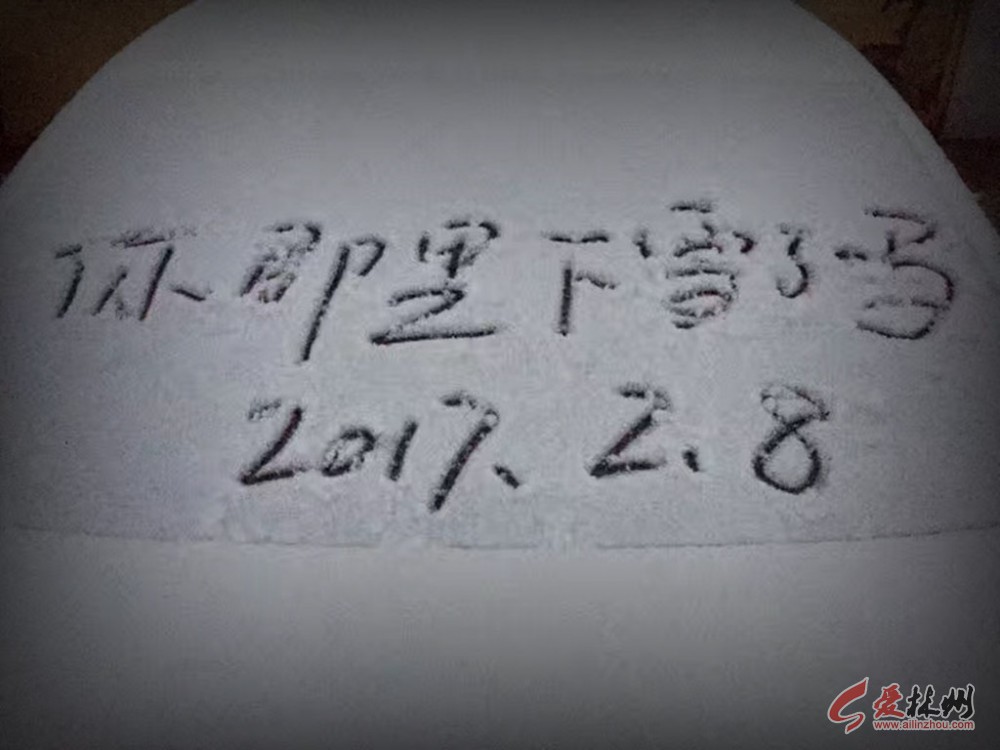 你那里下雪了吗
2017.2.8
爱林州
www.ailinzhou.com